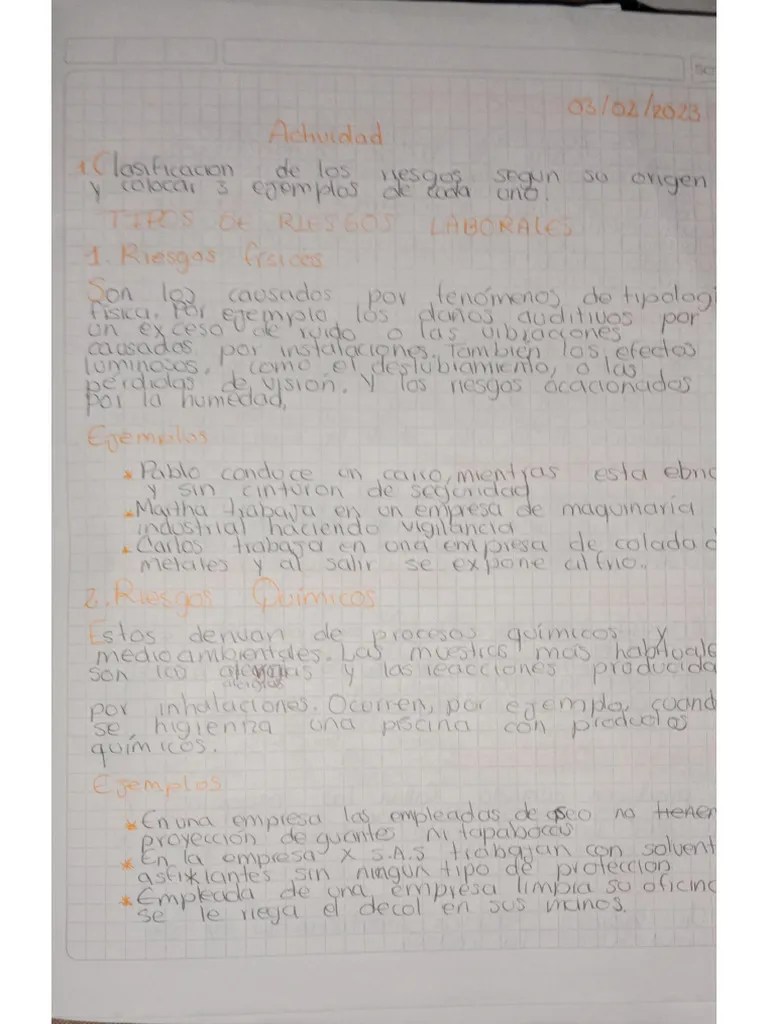 03/02/2023
Actividad
1 Clasificacion de los riesgos segun su origen
y colocar 3 ejemplos de cada uno.
TIPOS DE RIESGOS LABORALES
1. Riesgos fisicos
Son los causados por fenómenos de tipologi
física. Por ejemplo los daños auditivos por
un exceso de ruido o las vibraciones
causados por instalaciones. También los efectos
luminosos, como el deslubiamiento, o las
pérdidas de visión. Y los riesgos ocacionados
por la humedad,
Ejemplos
* Pablo conduce un carro, mientras esta ebrio
y sin cinturon de seguridad
* Martha trabaja en un empresa de maquinaria
industrial haciendo vigilancia
* Carlos trabaja en una empresa de colada d
metales y al salir se expone al frio.
2. Riesgos Químicos
Estos derivan de procesos químicos y
medioambientales. Las muestras más habituale
son las alergias y las reacciones producida
por inhalaciones. Ocurren, por ejemplo, cuand
se higieniza una piscina con productos
químicos.
Ejemplos
* En una empresa las empleadas de aseo no tienen
proyección de guantes ni tapabocas
* En la empresa X S.A.S trabajan con solvent
asfixiantes sin ningun tipo de protección
* Empleada de una empresa limpia su oficina
se le riega el decol en sus manos.